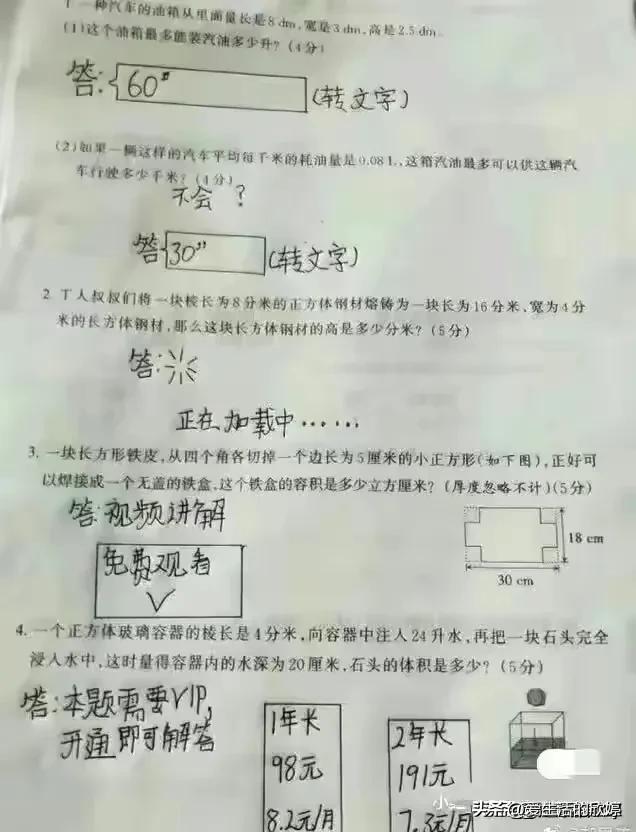 1. 一种汽车的油箱从里面量长是8 dm,宽是3 dm,高是2.5 dm。
(1)这个油箱最多能装汽油多少升?(4分)
答: 60" (转文字)
(2)如果一辆这样的汽车平均每千米的耗油量是0.08 L,这箱汽油最多可以供这辆汽
车行驶多少千米?(4分)
不会 ?
答 30" (转文字)
2. 工人叔叔们将一块棱长为8分米的正方体钢材熔铸为一块长为16分米、宽为4分
米的长方体钢材,那么这块长方体钢材的高是多少分米?(5分)
答:
正在加载中……
3. 一块长方形铁皮,从四个角各切掉一个边长为5厘米的小正方形(如下图),正好可
以焊接成一个无盖的铁盒,这个铁盒的容积是多少立方厘米?(厚度忽略不计)(5分)
答:视频讲解
免费观看
18 cm
30 cm
4. 一个正方体玻璃容器的棱长是4分米,向容器中注入24升水,再把一块石头完全
浸入水中,这时量得容器内的水深为20厘米,石头的体积是多少?(5分)
答:本题需要VIP,
开通即可解答
1年长
98元
8.2元/月
2年长
191元
7.3元/月
头条@爱生活的欣婷